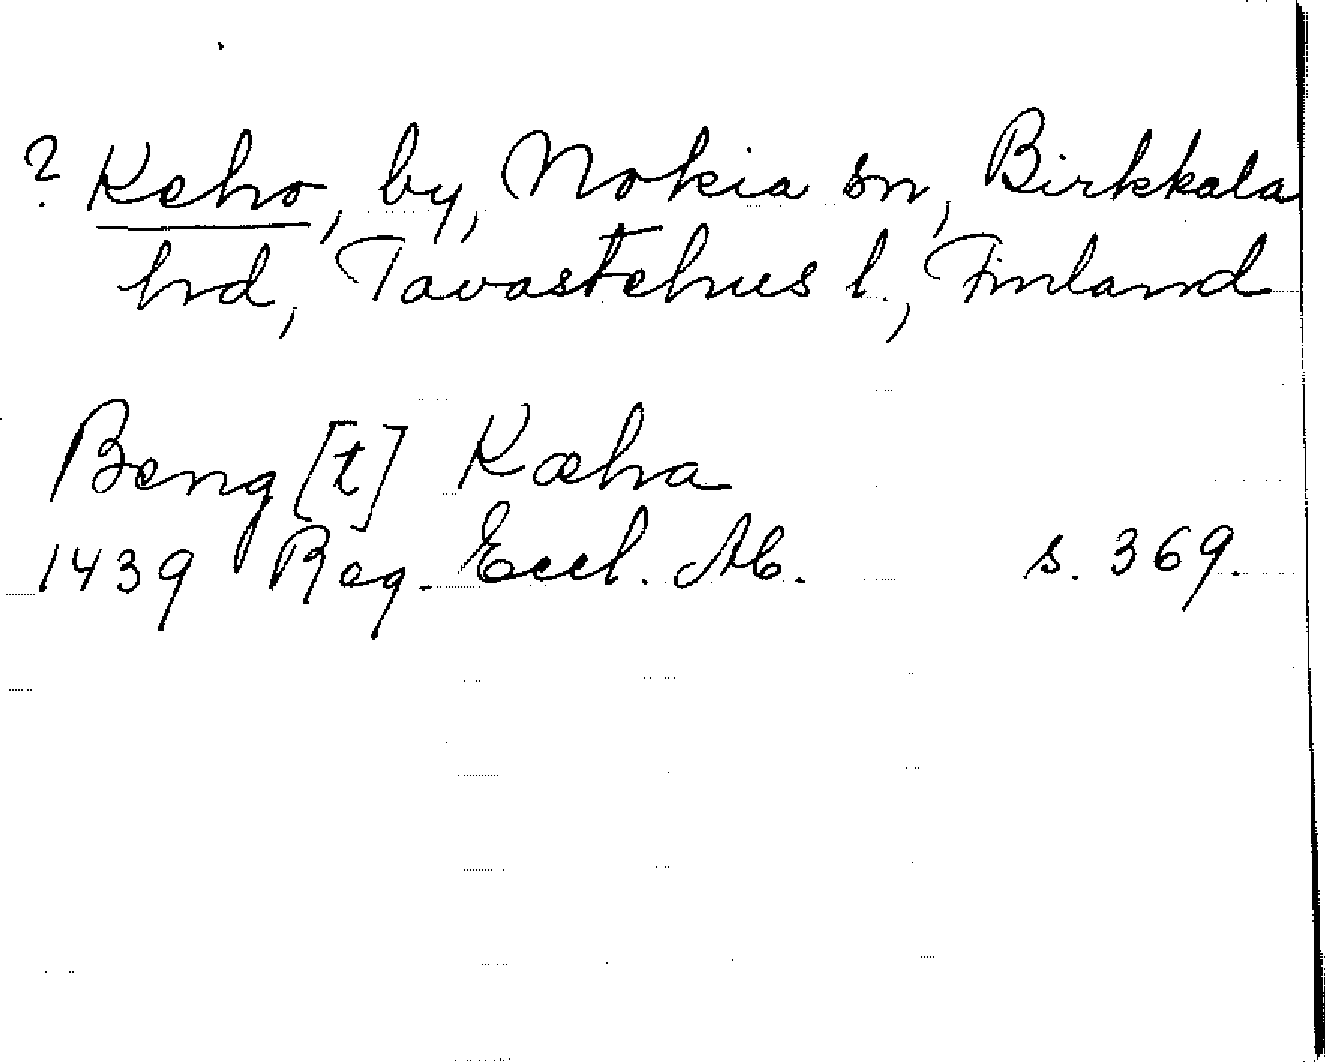 ? Keho, by, Nokia sn, Birkkala
hd, Tavastehus l., Finland
Beng[t] Kæha
1439 Reg. Eccl. Ab. s. 369.